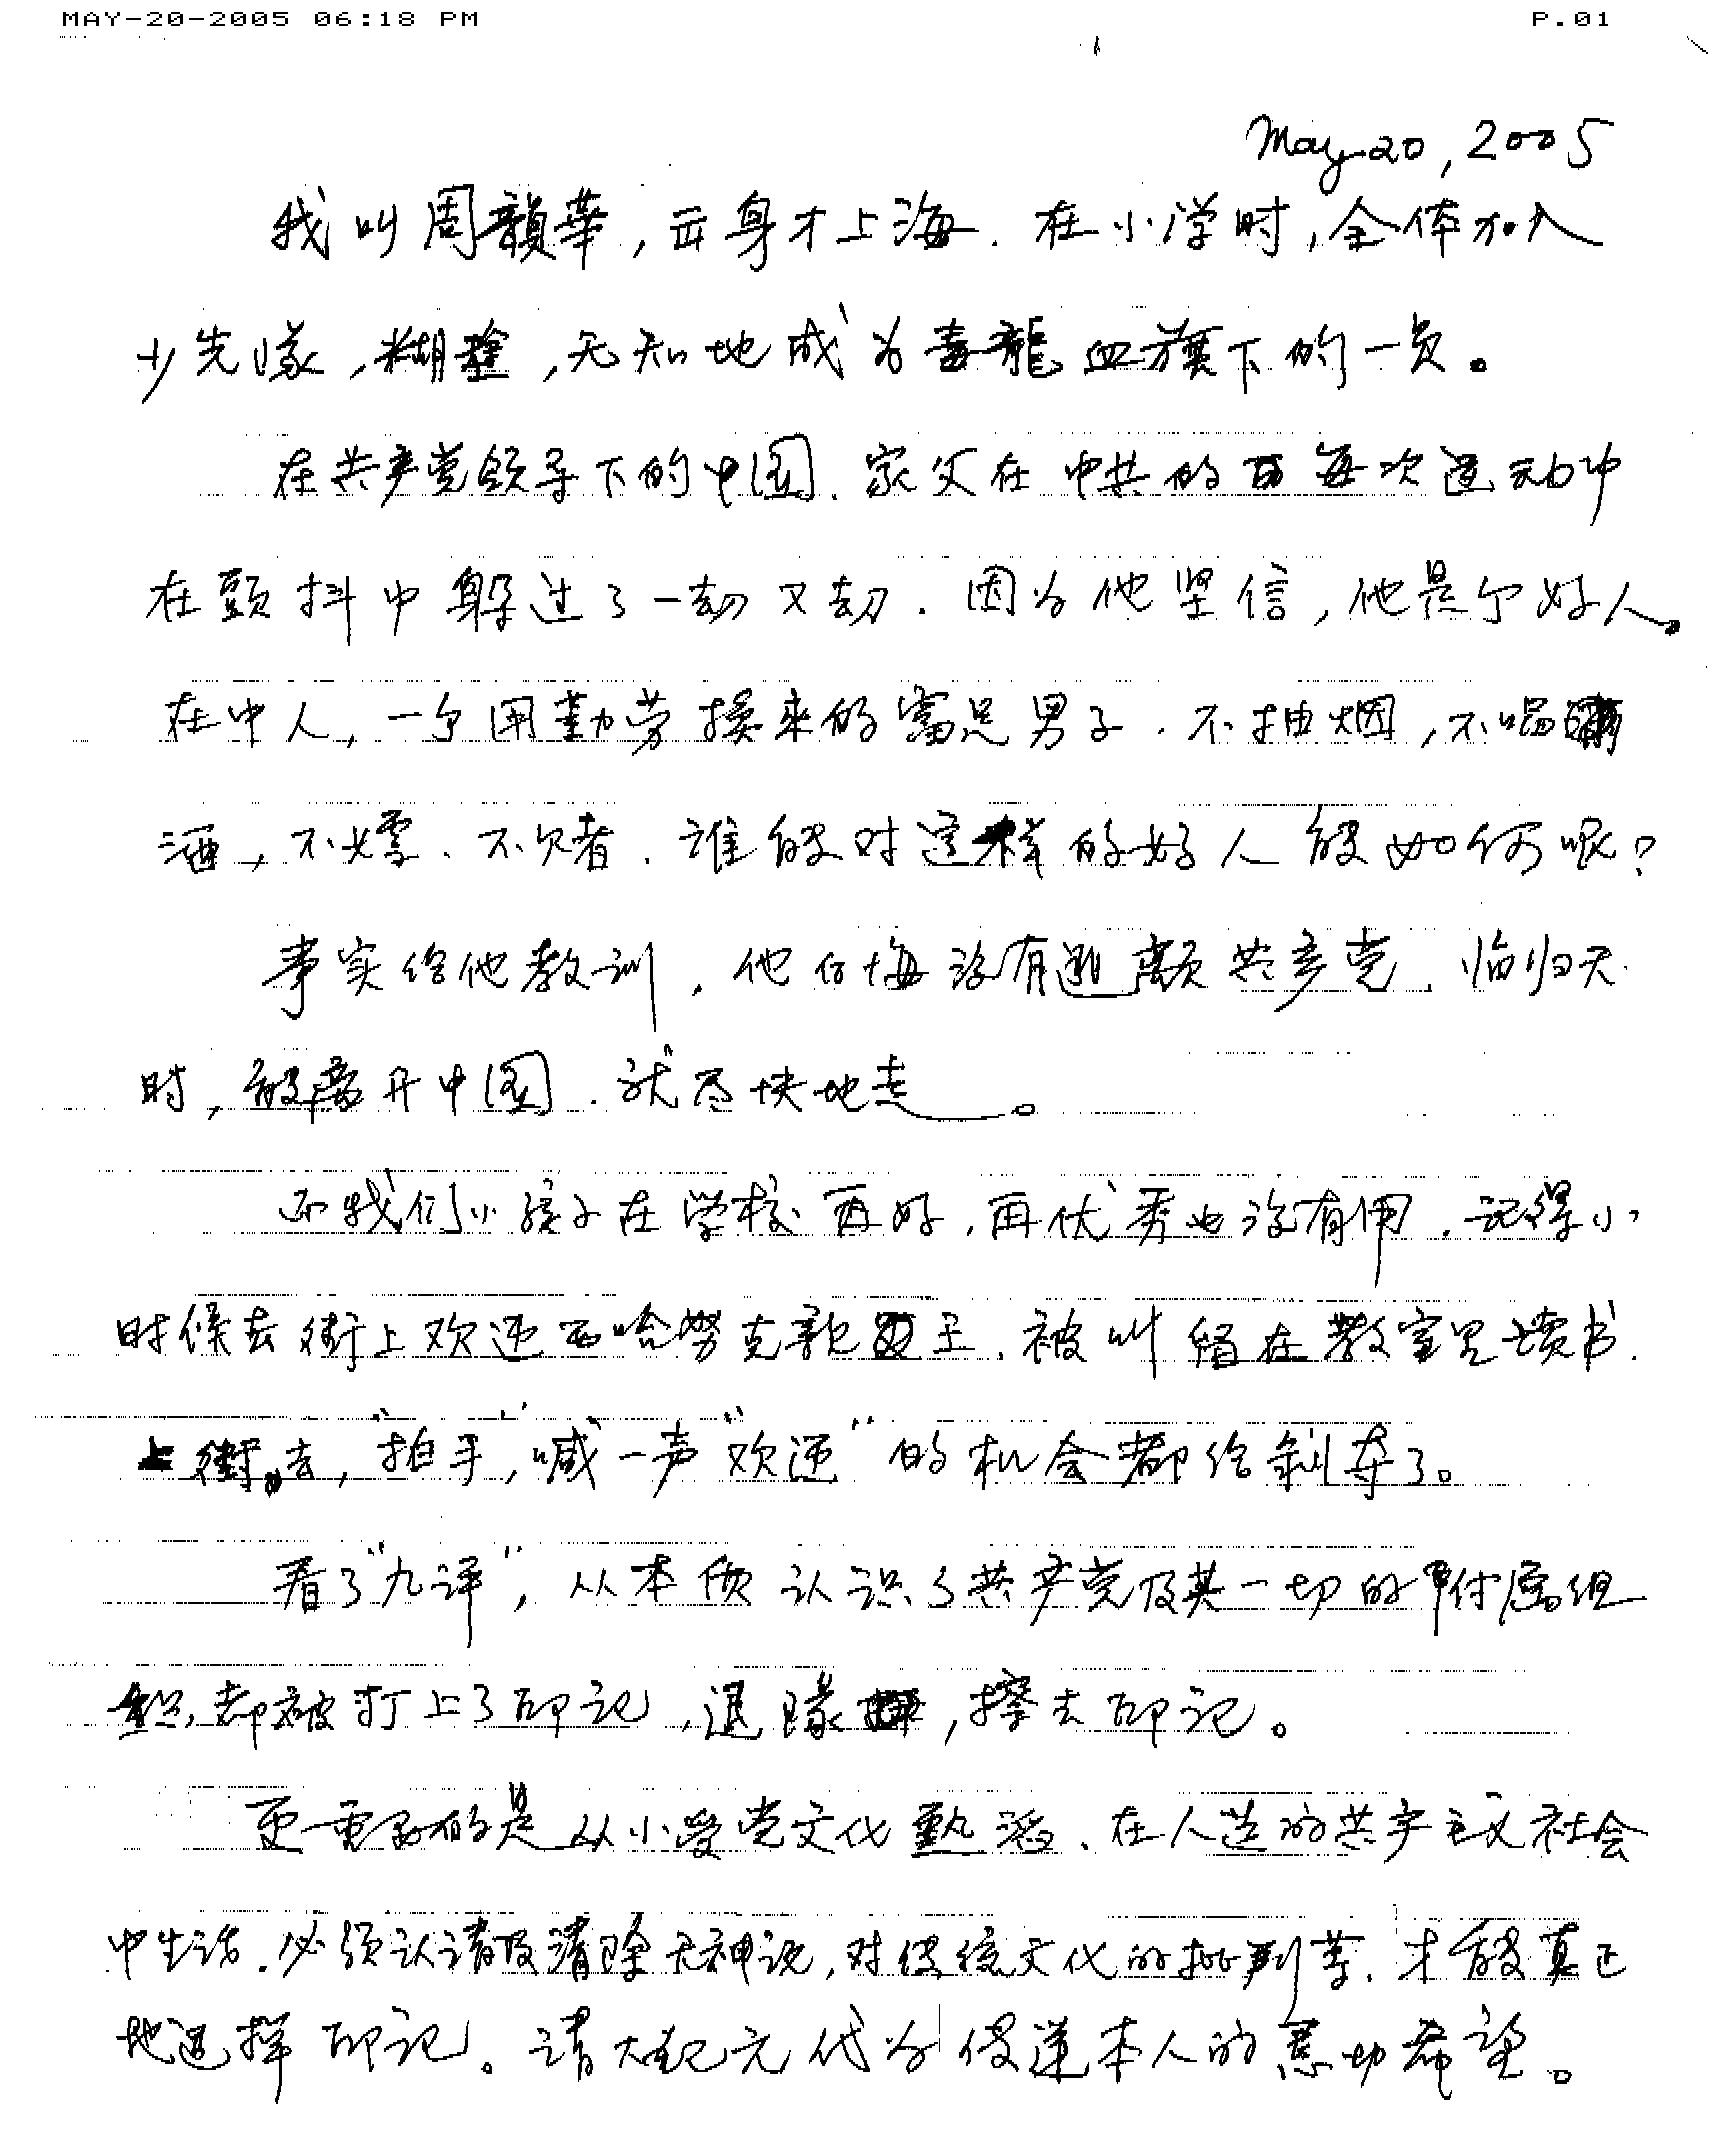 MAY-20-2005 06:18 PM P.01
May 20, 2005
我叫周韻華,出身于上海.在小学时,全体加入
少先隊,糊塗,无知地成为毒龍血旗下的一员。
在共产党领导下的中国.家父在中共的每次运动中
在顫抖中躲过了一劫又劫.因为他坚信,他是个好人。
在中人,一个用勤劳换来的富足男子.不抽烟,不喝
酒,不嫖、不欠者.谁能对这样的好人能如何呢?
事实给他教训,他后悔没有逃離共产党.临归天
时,能离开中国.就尽快地走。
而我们小孩子在学校再好,再优秀也没有用.记得小
时候去街上欢迎西哈努克亲王,被叫留在教室里读书.
上街去,"拍手",喊一声"欢迎"的机会都给剥夺了。
看了"九评",从本质认识了共产党及其一切的附属组
织,都被打上了印记,退隊,擦去印记。
更重要的是从小受党文化熏陶、在人造的共产主义社会
中生活.必须认清及清除无神论,对传统文化的批判等.才能真正
地选择印记。请大纪元代为传递本人的恳切希望。